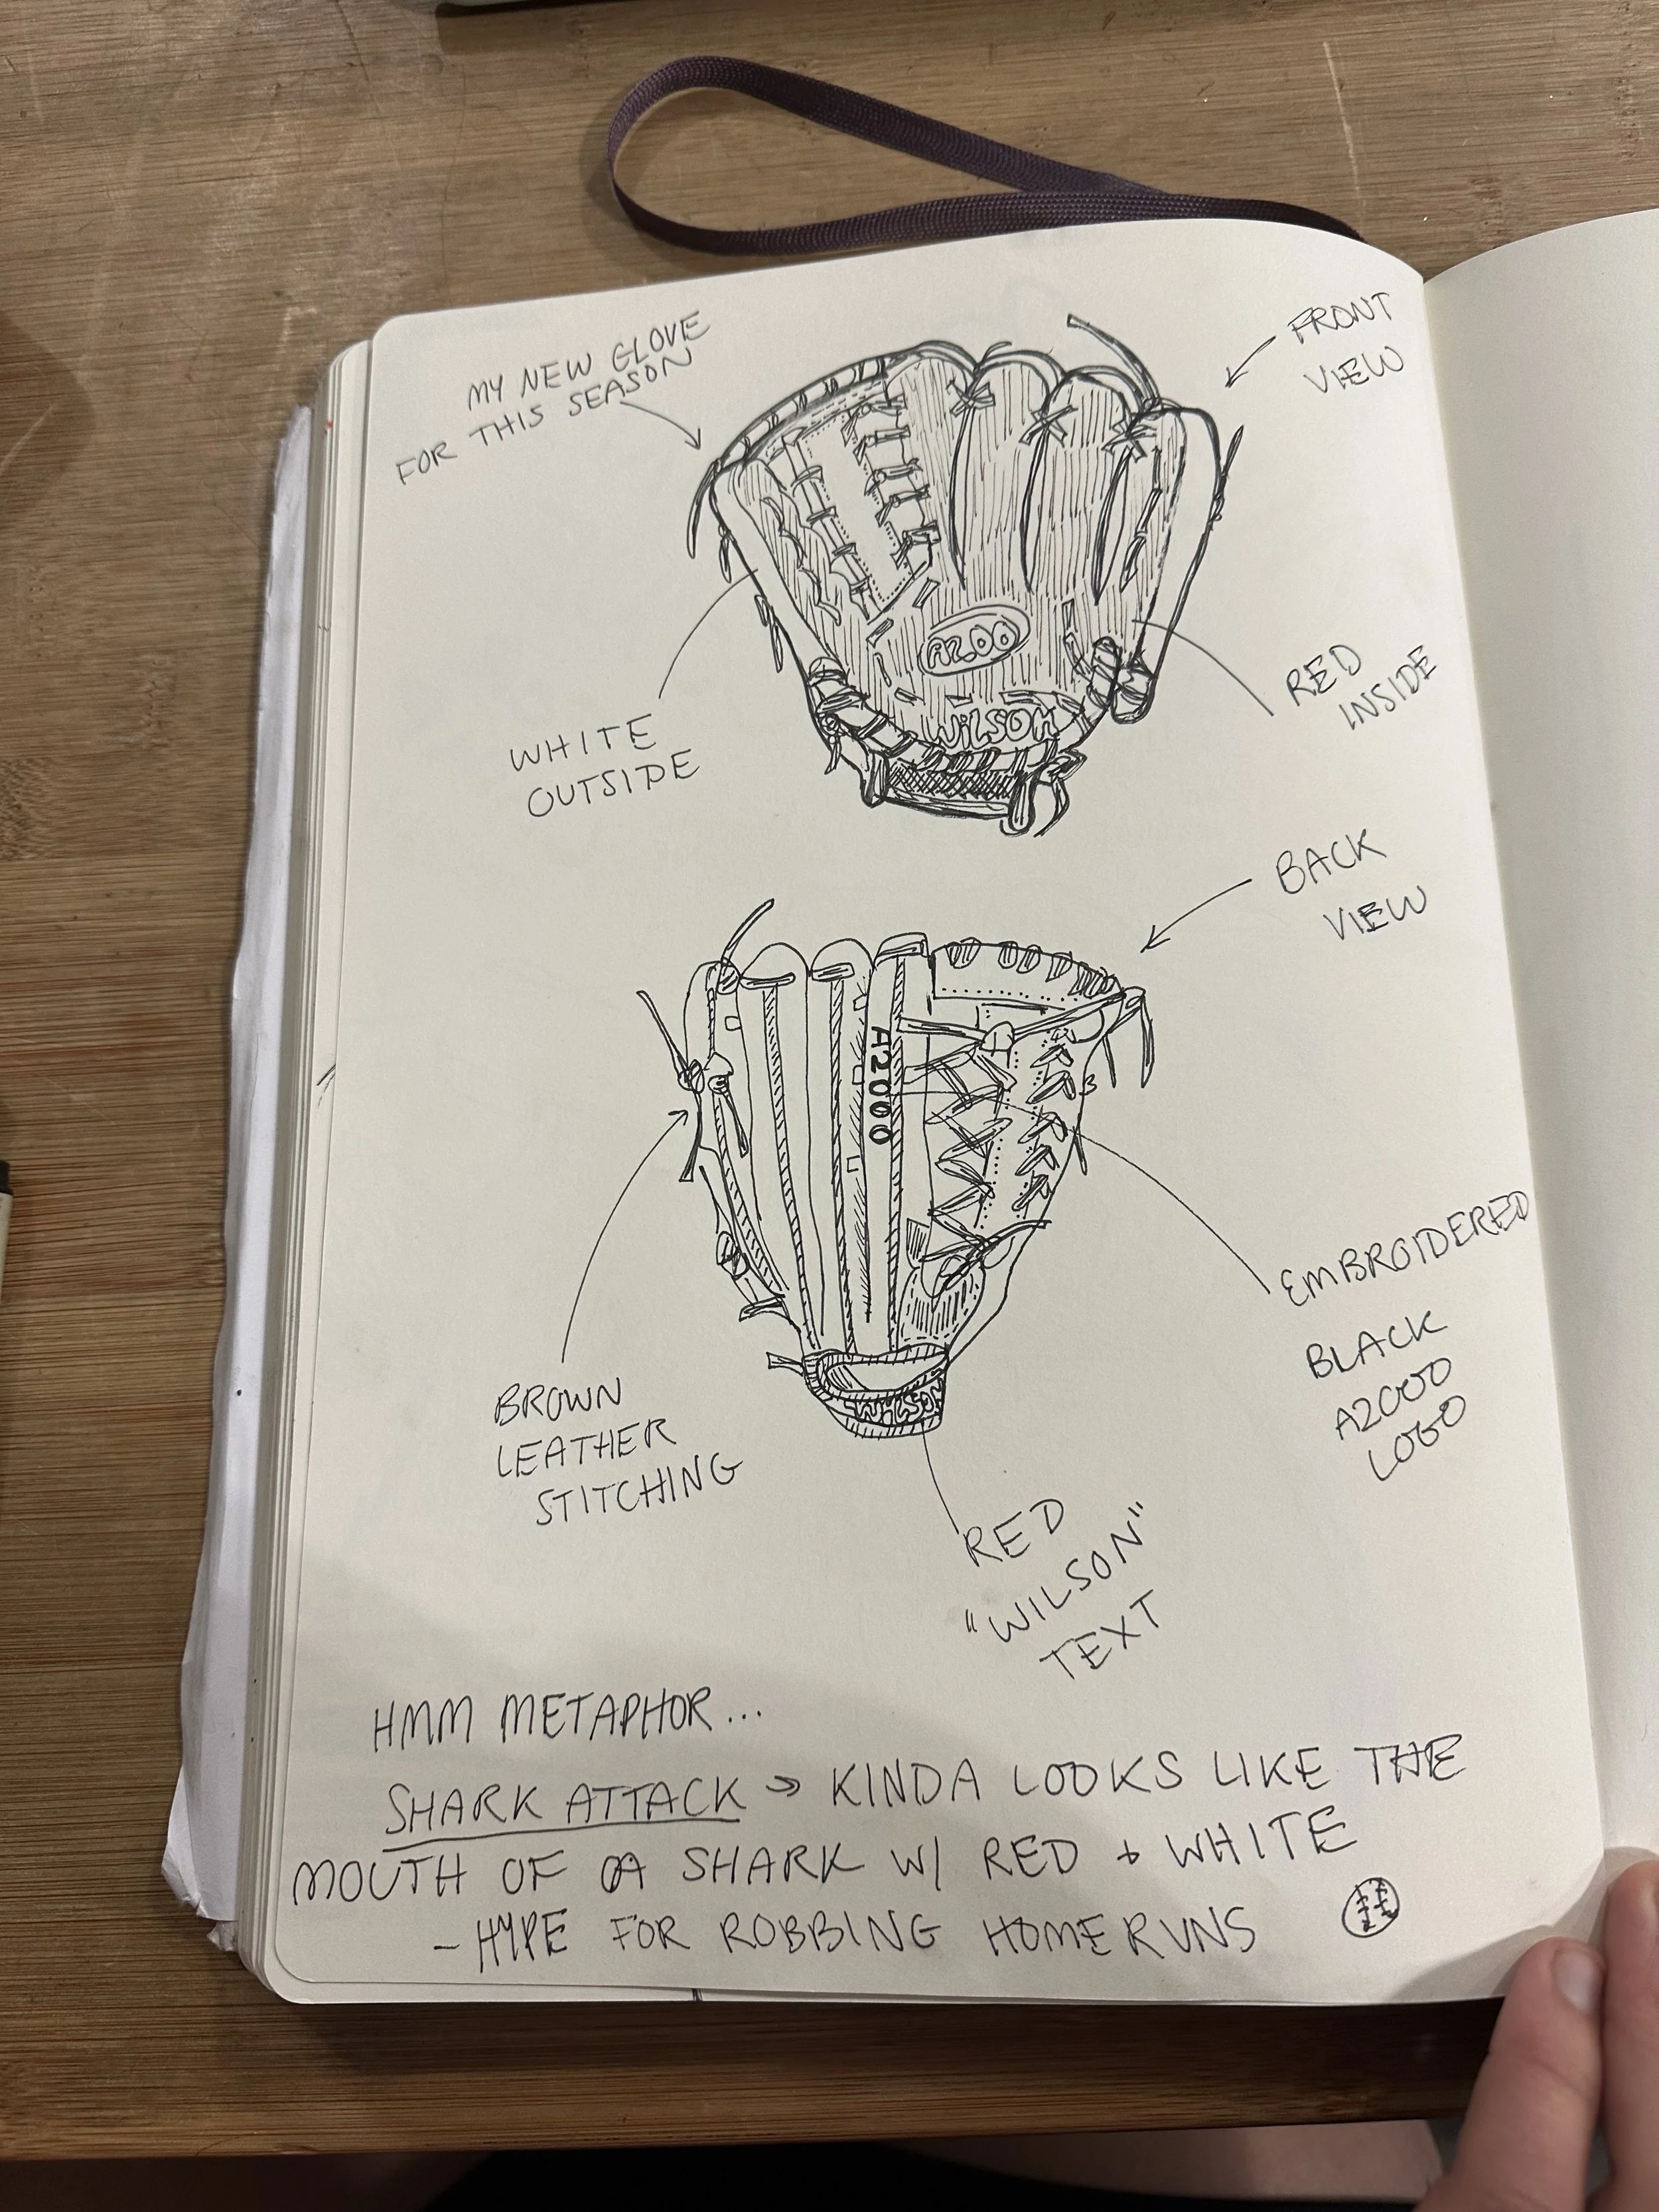 MY NEW GLOVE
FOR THIS SEASON
FRONT
VIEW
A2.00
WILSON
WHITE
OUTSIDE
RED
INSIDE
BACK
VIEW
A2000
WILSON
BROWN
LEATHER
STITCHING
EMBROIDERED
BLACK
A2000
LOGO
RED
"WILSON"
TEXT
HMM METAPHOR...
SHARK ATTACK → KINDA LOOKS LIKE THE
MOUTH OF A SHARK W/ RED + WHITE
- HYPE FOR ROBBING HOMERUNS